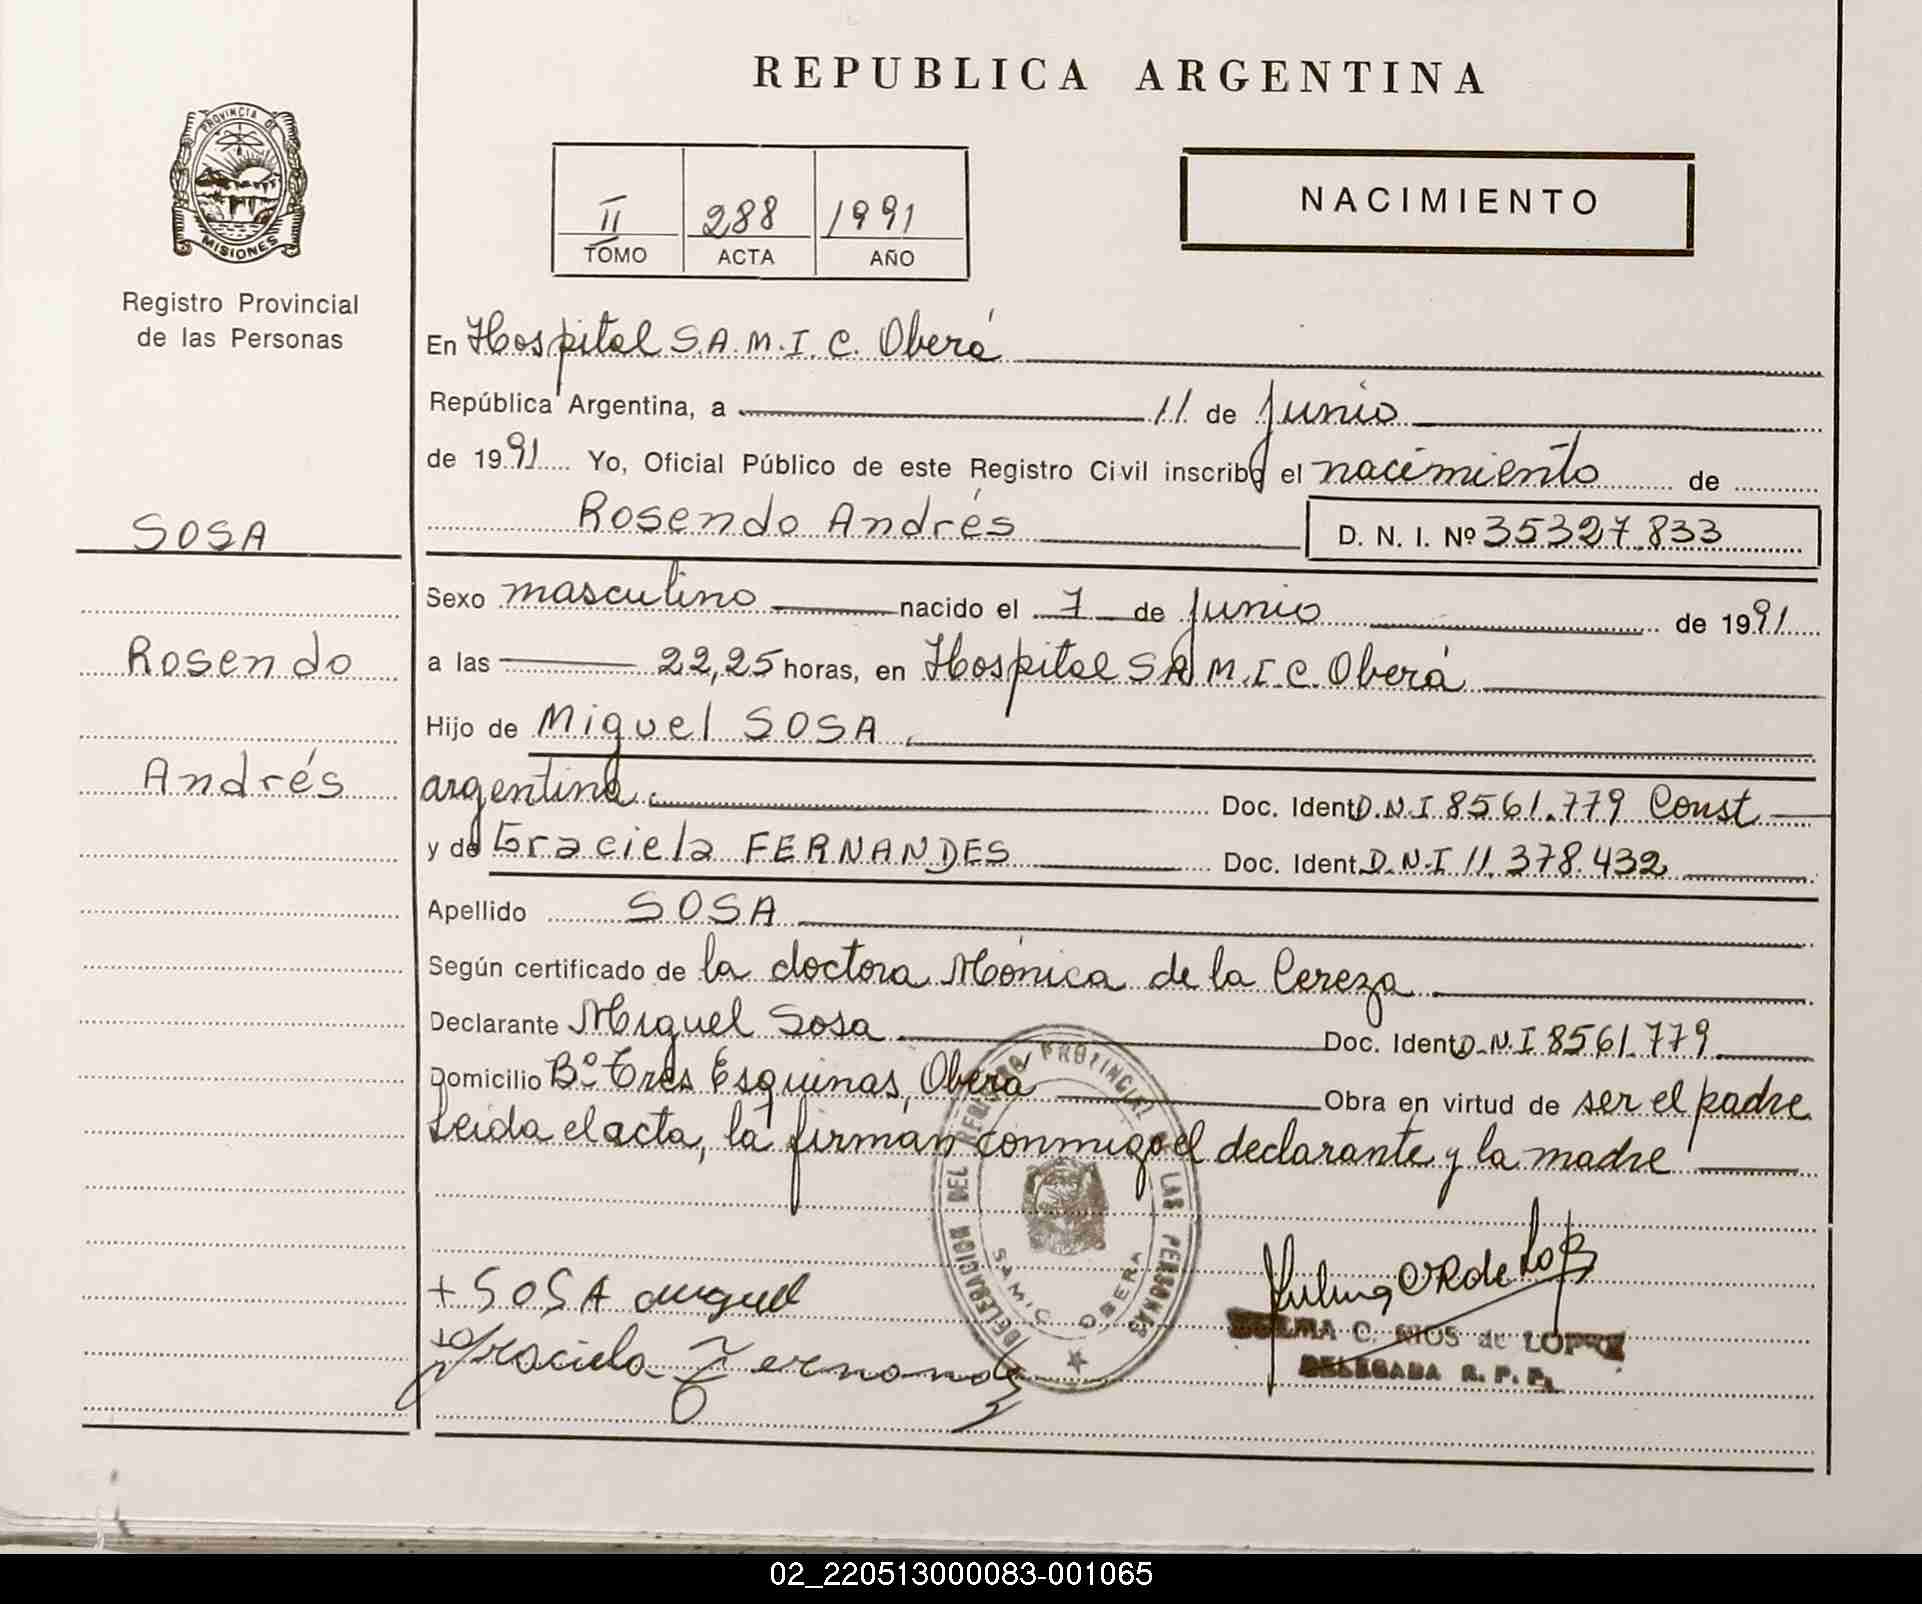 REPUBLICA ARGENTINA
PROVINCIA DE
MISIONES
Registro Provincial
de las Personas
II 288 1991
TOMO ACTA AÑO
NACIMIENTO
En Hospital S.A.M.I.C. Oberá
República Argentina, a 11 de Junio
de 1991 Yo, Oficial Público de este Registro Civil inscribo el nacimiento de
Rosendo Andrés D. N. I. Nº 35327.833
SOSA
Rosendo
Andrés
Sexo masculino nacido el 7 de Junio de 1991
a las 22,25 horas, en Hospital S.A.M.I.C. Oberá
Hijo de Miguel SOSA,
argentina. Doc. Ident D.N.I 8561.779 Const
y de Graciela FERNANDES Doc. Ident. D.N.I 11.378.432
Apellido SOSA
Según certificado de la doctora Mónica de la Cereza
Declarante Miguel Sosa Doc. Ident D.N.I 8561.779
Domicilio Bº Tres Esquinas, Oberá Obra en virtud de ser el padre
Leida el acta, la firman conmigo el declarante y la madre
DELEGACION DEL REGISTRO PROVINCIAL DE LAS PERSONAS
SAMIC OBERA
+ SOSA Miguel
+ Graciela Fernandez
C. RIOS de LOPEZ
DELEGADA R. P. P.
02_220513000083-001065